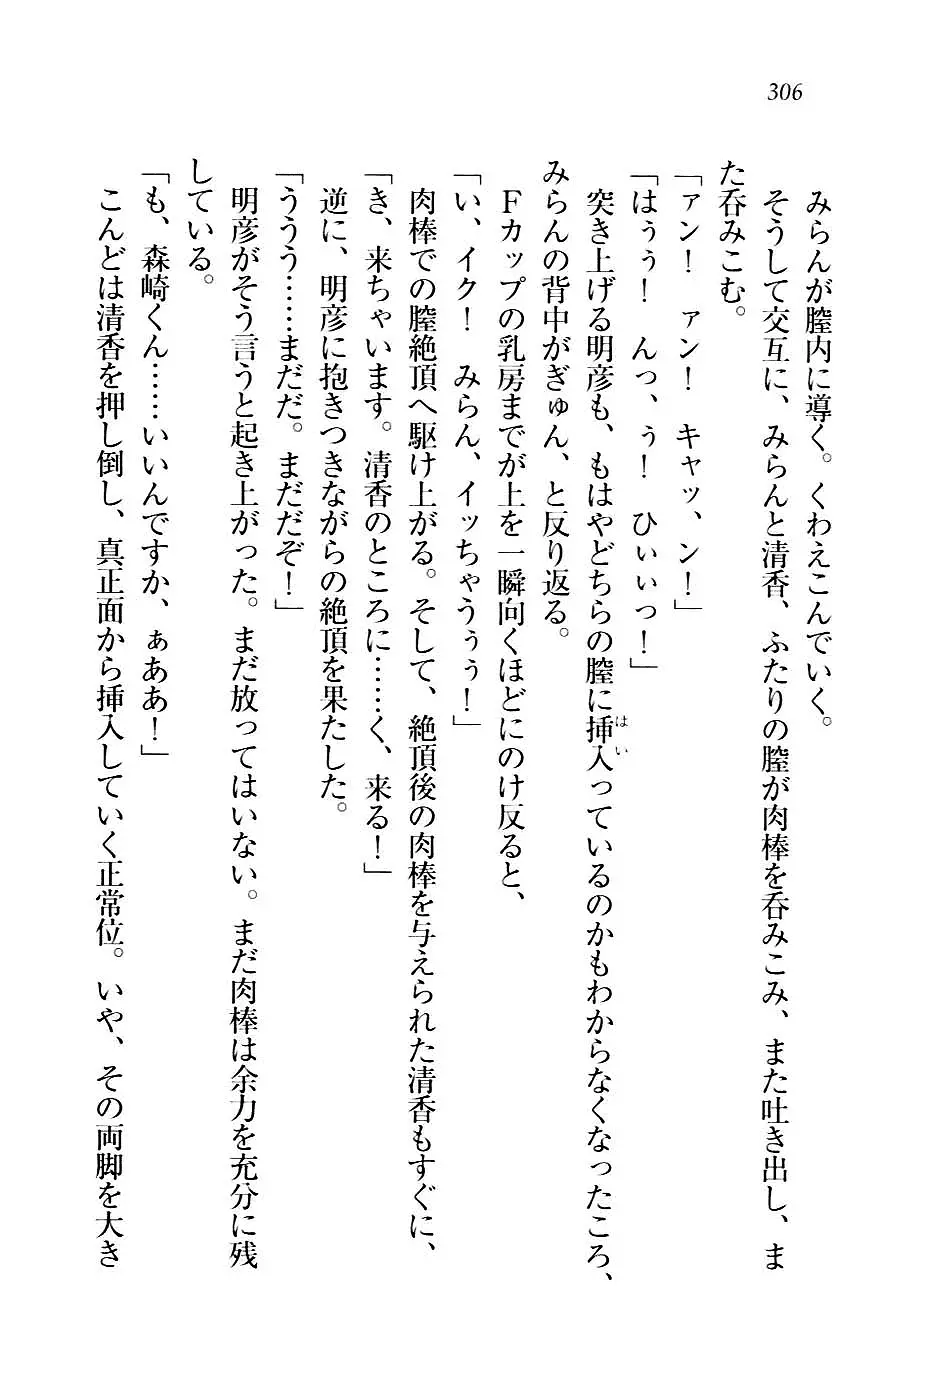 306
みらんが膣内に導く。くわえこんでいく。
そうして交互に、みらんと清香、ふたりの膣が肉棒を呑みこみ、また吐き出し、ま
た呑みこむ。
「ァン！　ァン！　キャッ、ン！」
「はぅぅ！　んっ、ぅ！　ひぃぃっ！」
突き上げる明彦も、もはやどちらの膣に挿入っているのかもわからなくなったころ、
はい
みらんの背中がぎゅん、と反り返る。
Ｆカップの乳房までが上を一瞬向くほどにのけ反ると、
「い、イク！　みらん、イッちゃうぅぅ！」
肉棒での膣絶頂へ駆け上がる。そして、絶頂後の肉棒を与えられた清香もすぐに、
「き、来ちゃいます。清香のところに……く、来る！」
逆に、明彦に抱きつきながらの絶頂を果たした。
「ううう……まだだ。まだだぞ！」
明彦がそう言うと起き上がった。まだ放ってはいない。まだ肉棒は余力を充分に残
している。
「も、森崎くん……いいんですか、ぁああ！」
こんどは清香を押し倒し、真正面から挿入していく正常位。いや、その両脚を大き